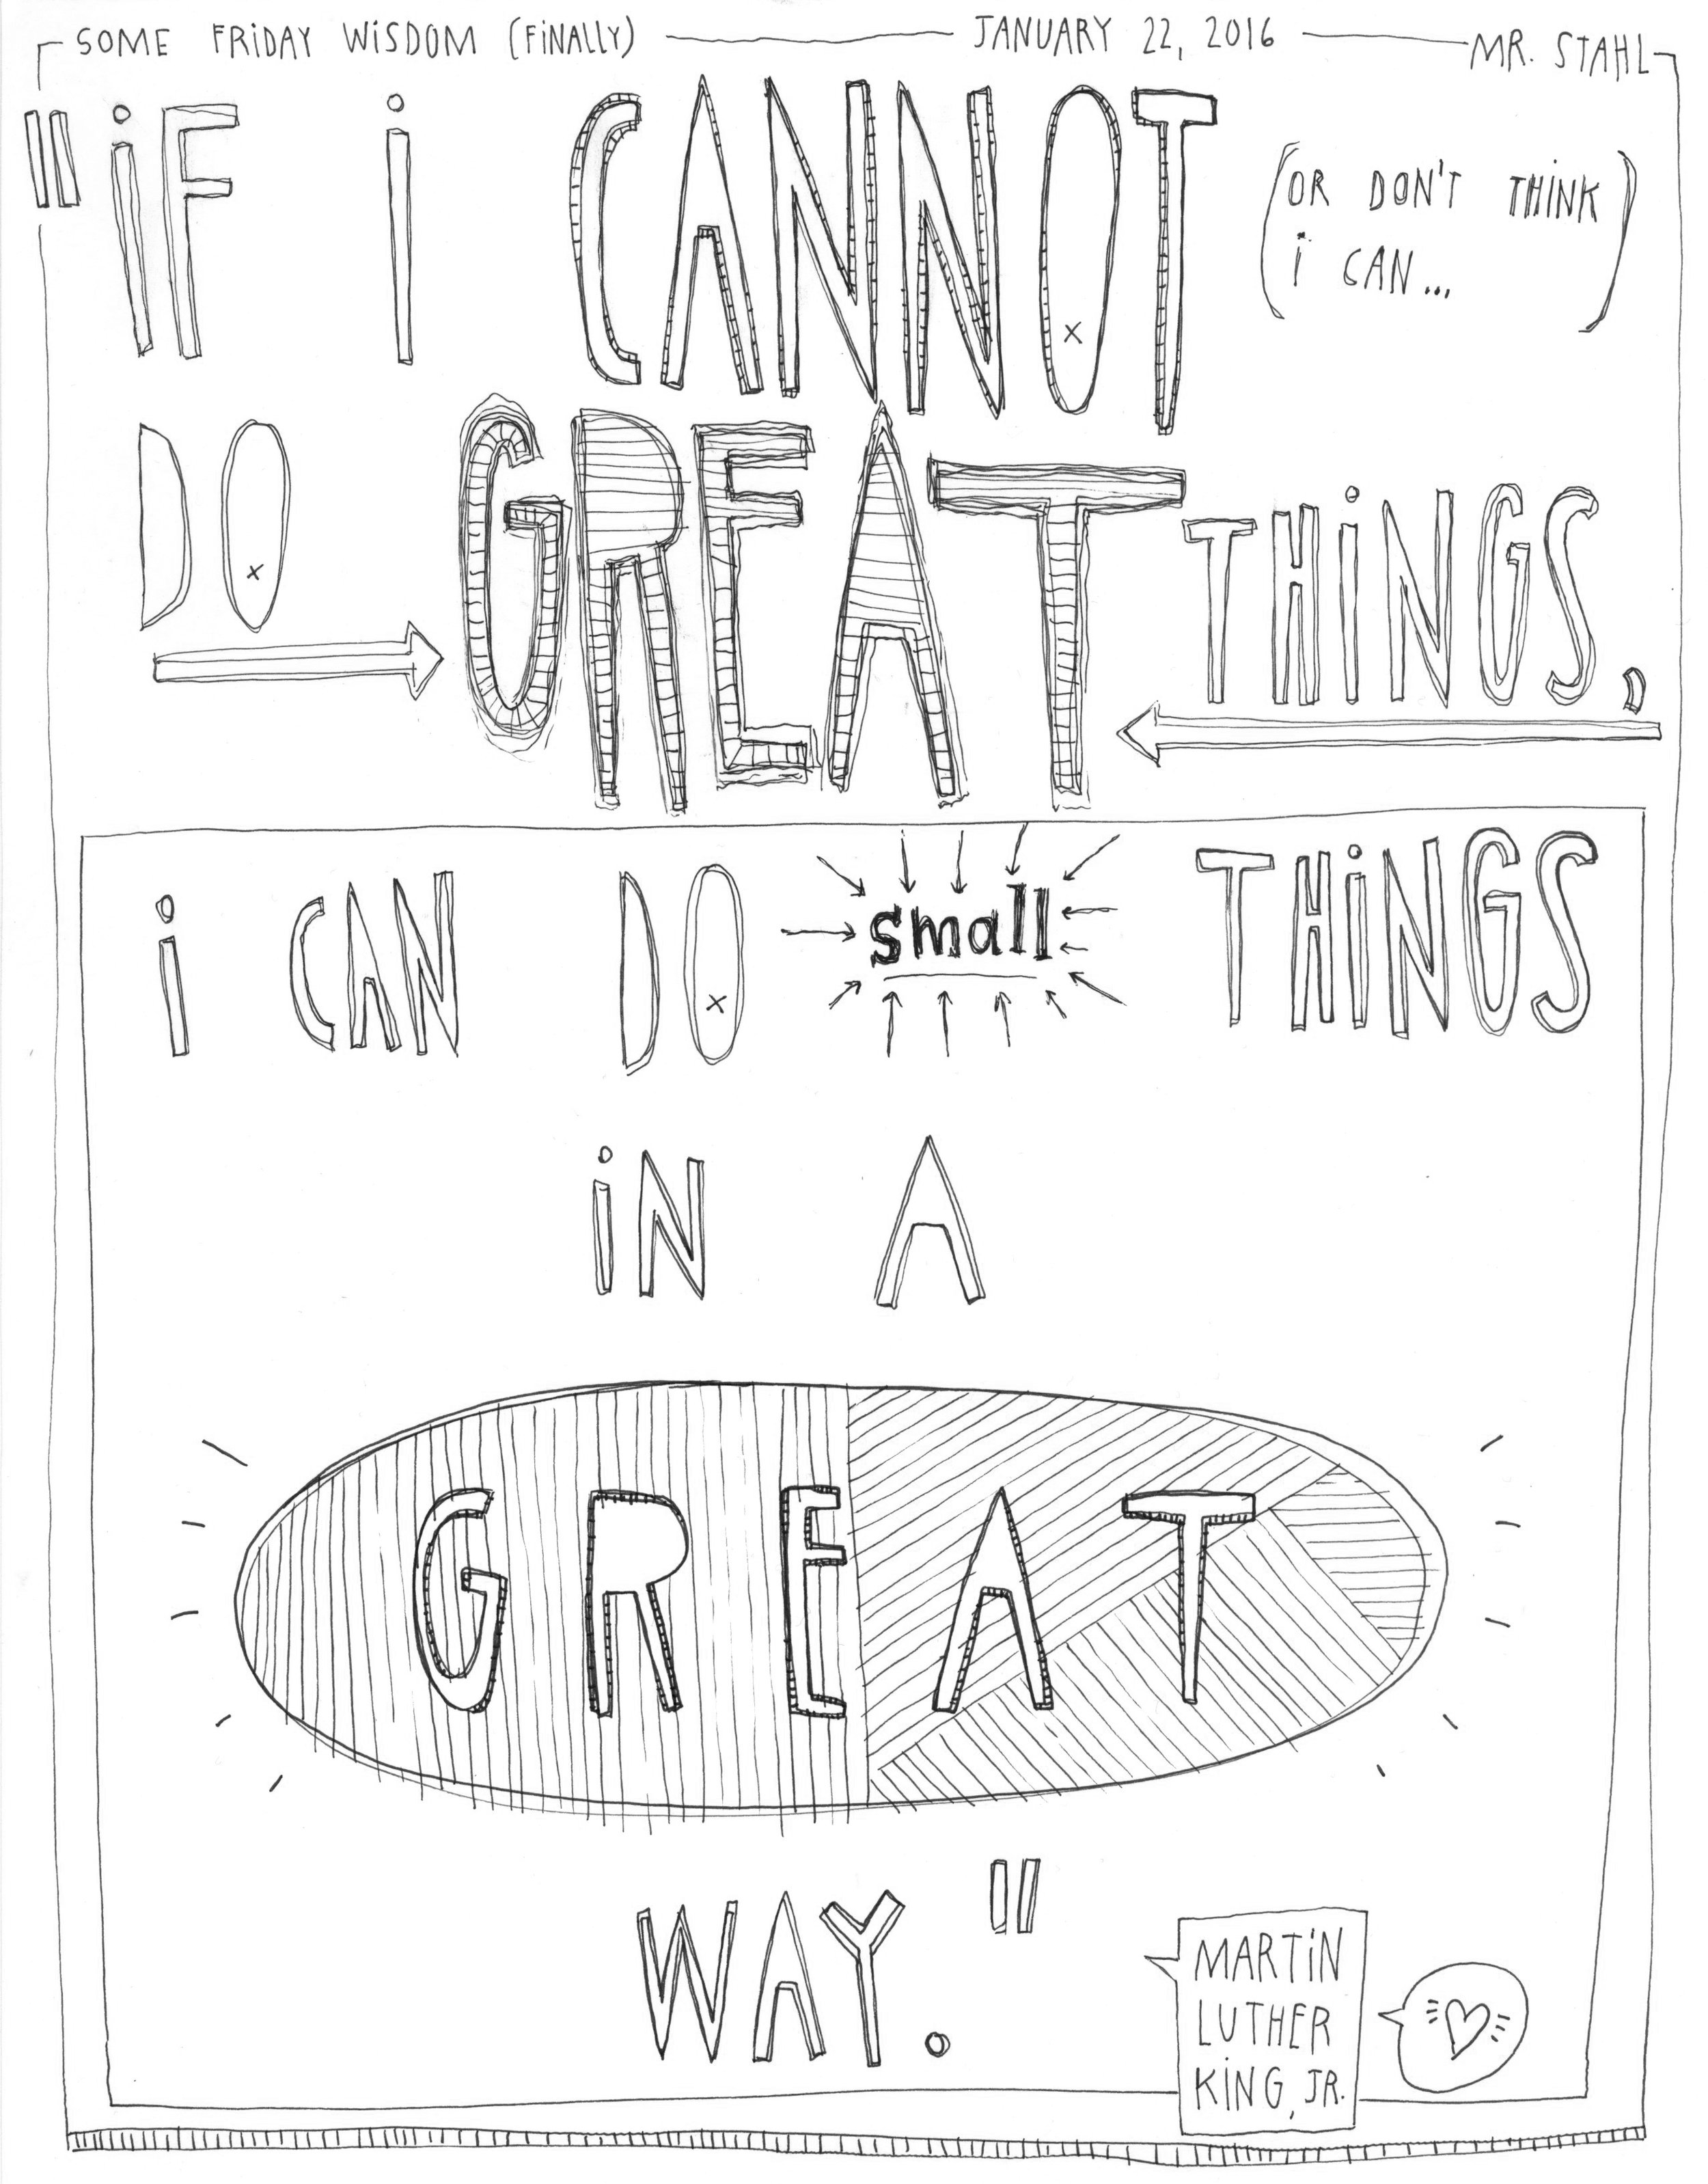 SOME FRiDAY WiSDOM (FiNALLY) JANUARY 22, 2016 MR. STAHL
"iF i CANNOT (OR DON'T THiNK
i CAN...)
DO GREAT THiNGS,
i CAN DO small THiNGS
iN A
GREAT
WAY."
MARTiN
LUTHER
KiNG, JR.